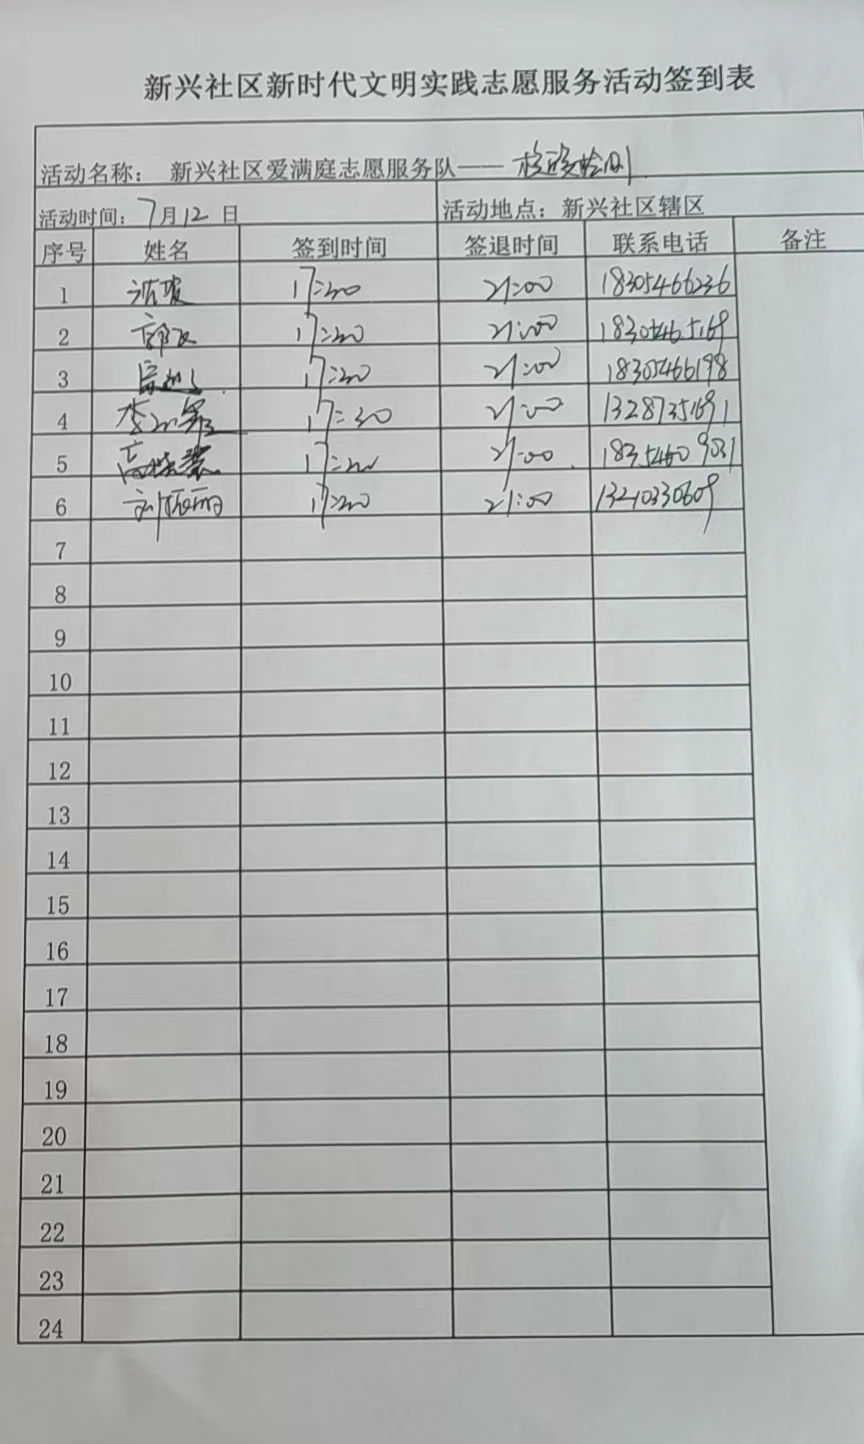 新兴社区新时代文明实践志愿服务活动签到表
活动名称： 新兴社区爱满庭志愿服务队——核酸检测
活动时间：7月12日 活动地点：新兴社区辖区
序号 姓名 签到时间 签退时间 联系电话 备注
1 17:20 21:00 18305466236
2 17:20 21:00 18305465169
3 17:20 21:00 18305466198
4 17:20 21:00 13287351691
5 17:20 21:00
6 17:20 21:00 13210330609
7
8
9
10
11
12
13
14
15
16
17
18
19
20
21
22
23
24